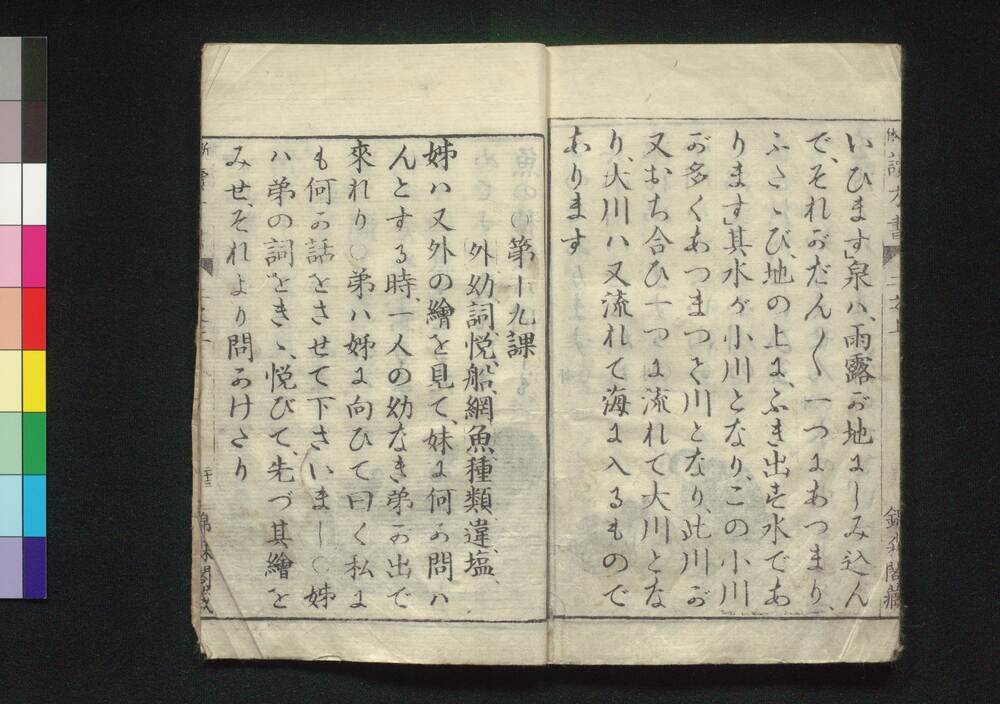 いひます」泉ハ、雨露が地にしみ込ん
で、それがだん〳〵一つにあつまり、
ふたゝび、地の上に、ふき出す水であ
ります」其水が小川となり、この小川
が多くあつまつて川となり、此川が
又おち合ひ一つに流れて大川とな
り、大川ハ又流れて海に入るもので
あります
第十九課
外、幼、詞、悦、船、網、魚、種、類、違、塩、
姊ハ又外の繪を見て、妹に何か問ハ
んとする時、一人の幼なき弟か出で
來れり○弟ハ姊に向ひて曰く私に
も何か話をさせて下さいまし○姊
ハ弟の詞をきゝ、悦びて、先づ其繪を
みせ、それより問かけたり